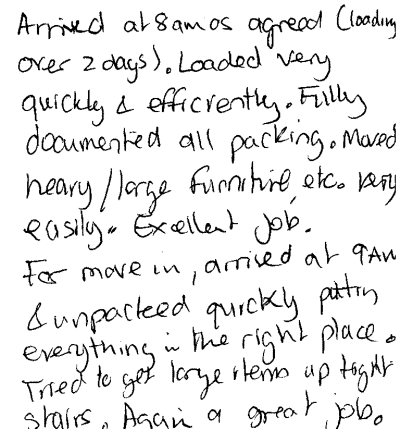 Arrived at 8am as agreed (loading
over 2 days). Loaded very
quickly & efficiently. Fully
documented all packing. Moved
heavy/large furniture, etc. very
easily. Excellent job.
For move in, arrived at 9AM
& unpacked quickly putting
everything in the right place.
Tried to get large items up tight
stairs. Again a great job.